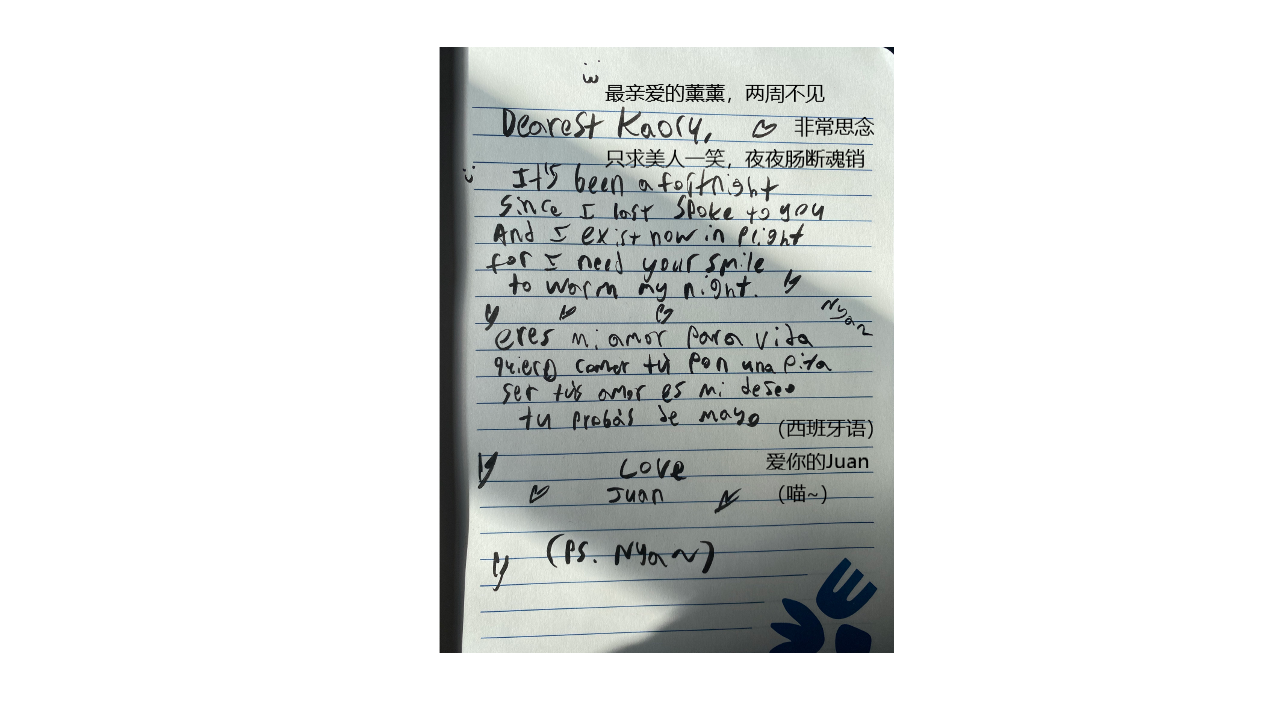 最亲爱的薰薰，两周不见
Dearest Kaory,
非常思念
只求美人一笑，夜夜肠断魂销
It's been a fortnight
since I last spoke to you
And I exist now in plight
for I need your smile
to warm my night.
Nyan
eres mi amor para vida
quiero comer tú pan una pita
ser tús amor es mi deseo
tu probás de mayo
（西班牙语）
Love
爱你的Juan
Juan
（喵~）
(PS. Nya~)